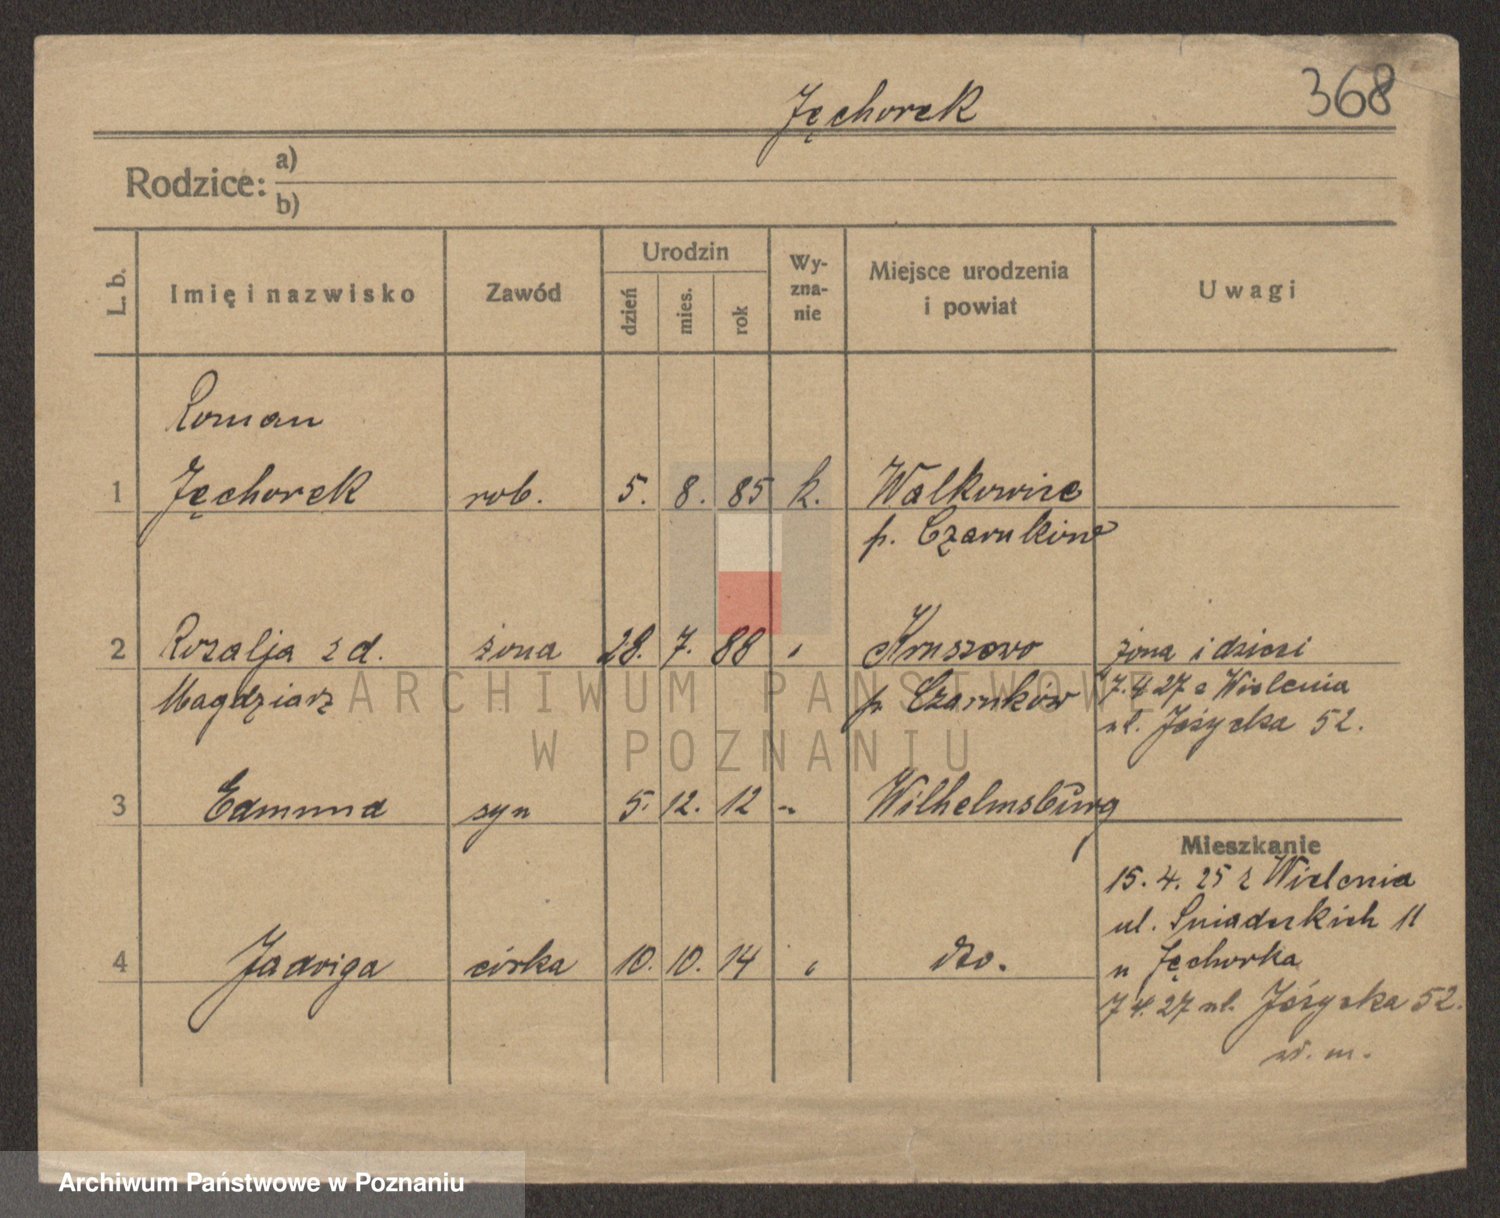 Jęchorek
368
Rodzice:
a)
b)
L. b.
Imię i nazwisko
Zawód
Urodzin
dzień
mies.
rok
Wy-
zna-
nie
Miejsce urodzenia
i powiat
Uwagi
Roman
1 Jęchorek rob. 5. 8. 85 k. Walkowice
p. Czarnków
2 Rozalja z d. żona 28. 7. 88 „ Kruszewo żona i dzieci
Magdziarz p. Czarnków 7.4 27 z Wielenia
ul. Jeżycka 52.
3 Edmund syn 5. 12. 12 „ Wilhelmsburg
Mieszkanie
15. 4. 25 z Wielenia
ul. Śniadeckich 11
4 Jadwiga córka 10. 10. 14 „ dto. u Jęchorka
7 4. 27 ul. Jeżycka 52.
w. m.
ARCHIWUM PAŃSTWOWE
W POZNANIU
Archiwum Państwowe w Poznaniu